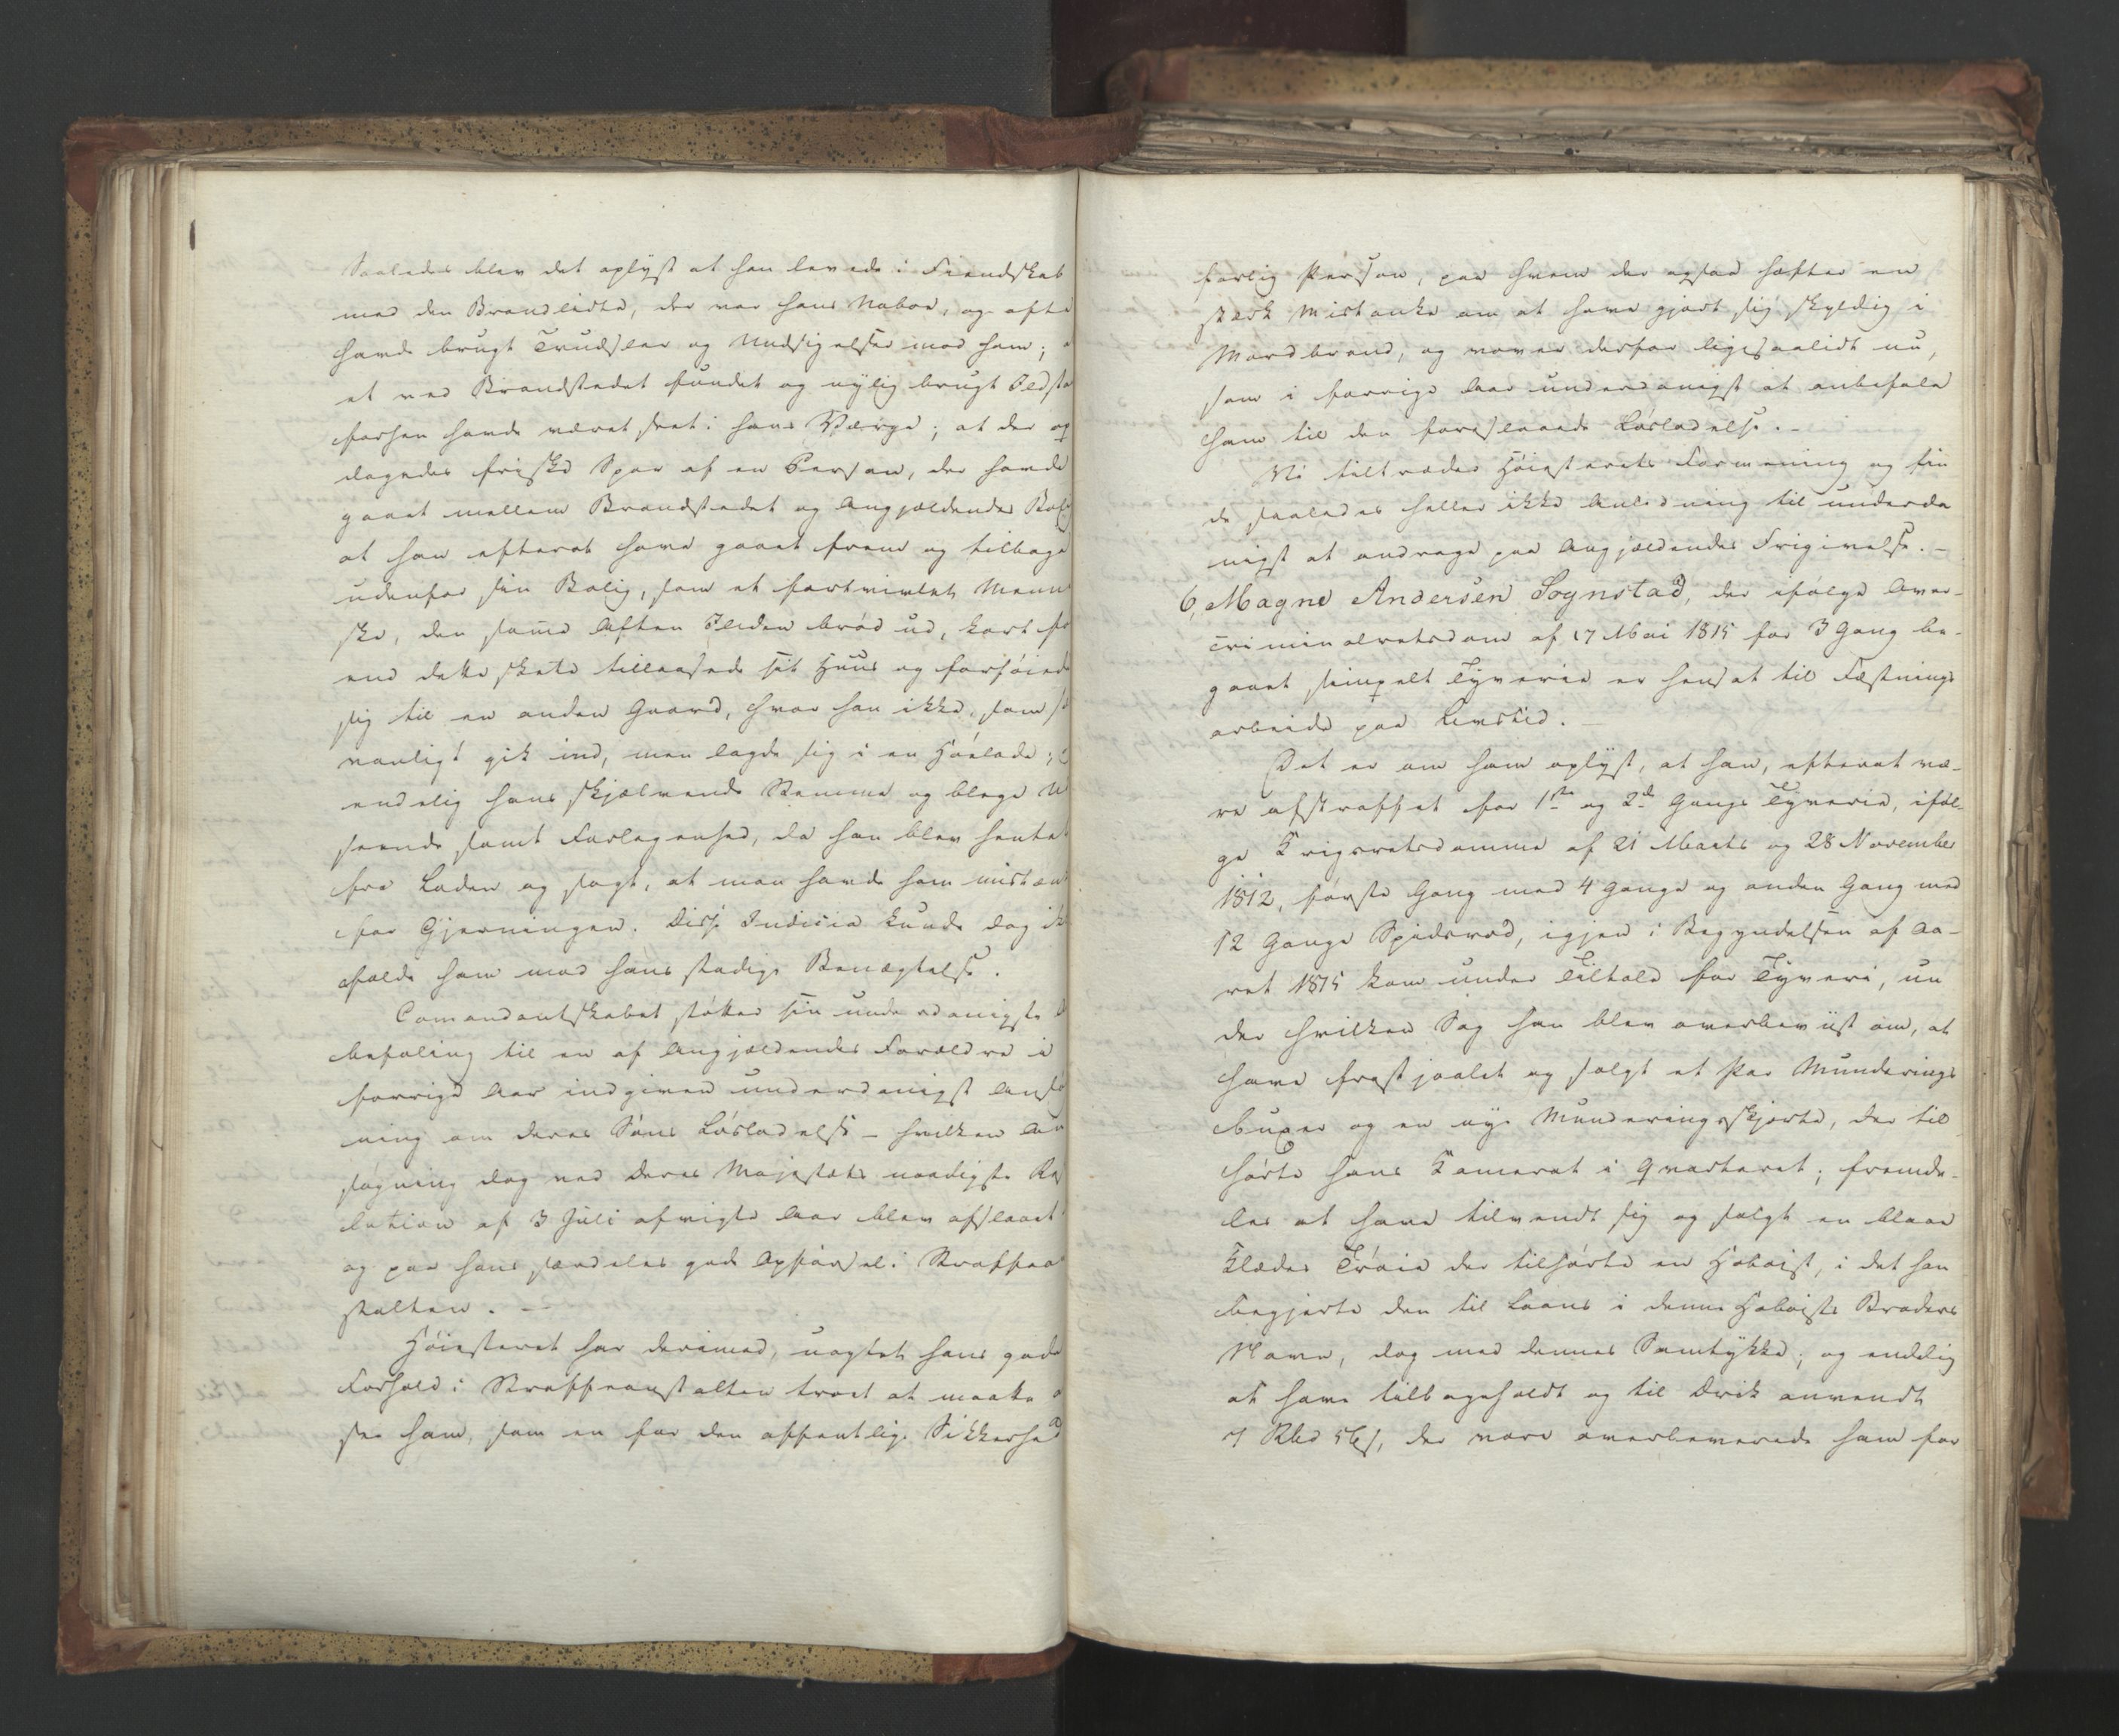 Saaledes blev det oplyst at han levede i Fiendskab
med den Brandlidte, der var hans Naboe, og ofte
havde brugt Trudsler og Undsigelser mod ham;
et ved Brandstedet fundet og nylig brugt Ildstaal
forhen havde været seet i hans Værge; at der op
dagedes friske Spor af en Person, der havde
gaaet mellem Brandstedet og Angjældendes Bolig
at han efterat have gaaet frem og tilbage
udenfor sin Bolig, som et fortvivlet Menne
ske, den samme Aften Ilden brød ud, kort før
end dette skete tillaasede sit Huus og forføiede
sig til en anden Gaard, hvor han ikke, som sæd
vanligt gik ind, men lagde sig i en Høelade;
endelig hans skjælvende Stemme og blege Ud
seende samt Forlegenhed, da han blev hentet
fra Laden og sagt, at man havde ham mistænkt
for Gjerningen. Disse Indicia kunde dog ikke
fælde ham mod hans stadige Benægtelse.
Comandantskabet støtter sin underdanigste
befaling til en af Angjældendes Forældre i
forrige Aar indgiven underdanigst Ansøg
ning om deres Søns Løsladelse – hvilken An
søgning dog ved Deres Majestæts naadigste Reso
lution af 3 Juli afvigte Aar blev afslaaet
og paa hans særdeles gode Opførsel i Straffean
stalten. —
Høiesteret har derimod, uagtet hans gode
Forhold i Straffeanstalten troet at maatte
see ham, som en for den offentlige Sikkerhed
farlig Person, paa hvem der ogsaa hæfter en
stærk Mistanke om at have gjort sig skyldig i
Mordbrand, og vover derfor ligesaalidt nu,
som i forrige Aar underdanigst at anbefale
ham til den foreslaaede Løsladelse. –
Vi tiltræder Høiesterets Formening og fin
de saaledes heller ikke Anledning til underda
nigst at andrage paa Angjældendes Frigivelse. –
6, Magne Andersen Sognstad, der ifølge Over-
criminalretsdom af 17 Mai 1815 for 3 Gang be-
gaaet simpelt Tyverie er hensat til Fæstnings
arbeide paa Livstid. –
Det er om ham oplyst, at han, efterat væ-
re afstraffet for 1ste og 2d Gangs Tyverie, iføl-
ge Krigsretsdomme af 21 Marts og 28 November
1812, første Gang med 4 Gange og anden Gang med
12 Gange Spidsrod, igjen i Begyndelsen af Aa-
ret 1815 kom under Tiltale for Tyveri, un
der hvilken Sag han blev overbeviist om, at
have frastjaalet og solgt et Par Munderings
buxer og en nye Munderingsskjorte, der til
hørte hans Kamerat i Qvarteret; fremde-
les at have tilvendt sig og solgt en blaae
Klædes Trøie der tilhørte en Hoboist, i det han
begjerte den til Laans i denne Hoboists Broders
Navn, dog med dennes Samtykke; og endelig
at have tilbageholdt og til Drik anvendt
7 Rbd, der vare overleverede ham for